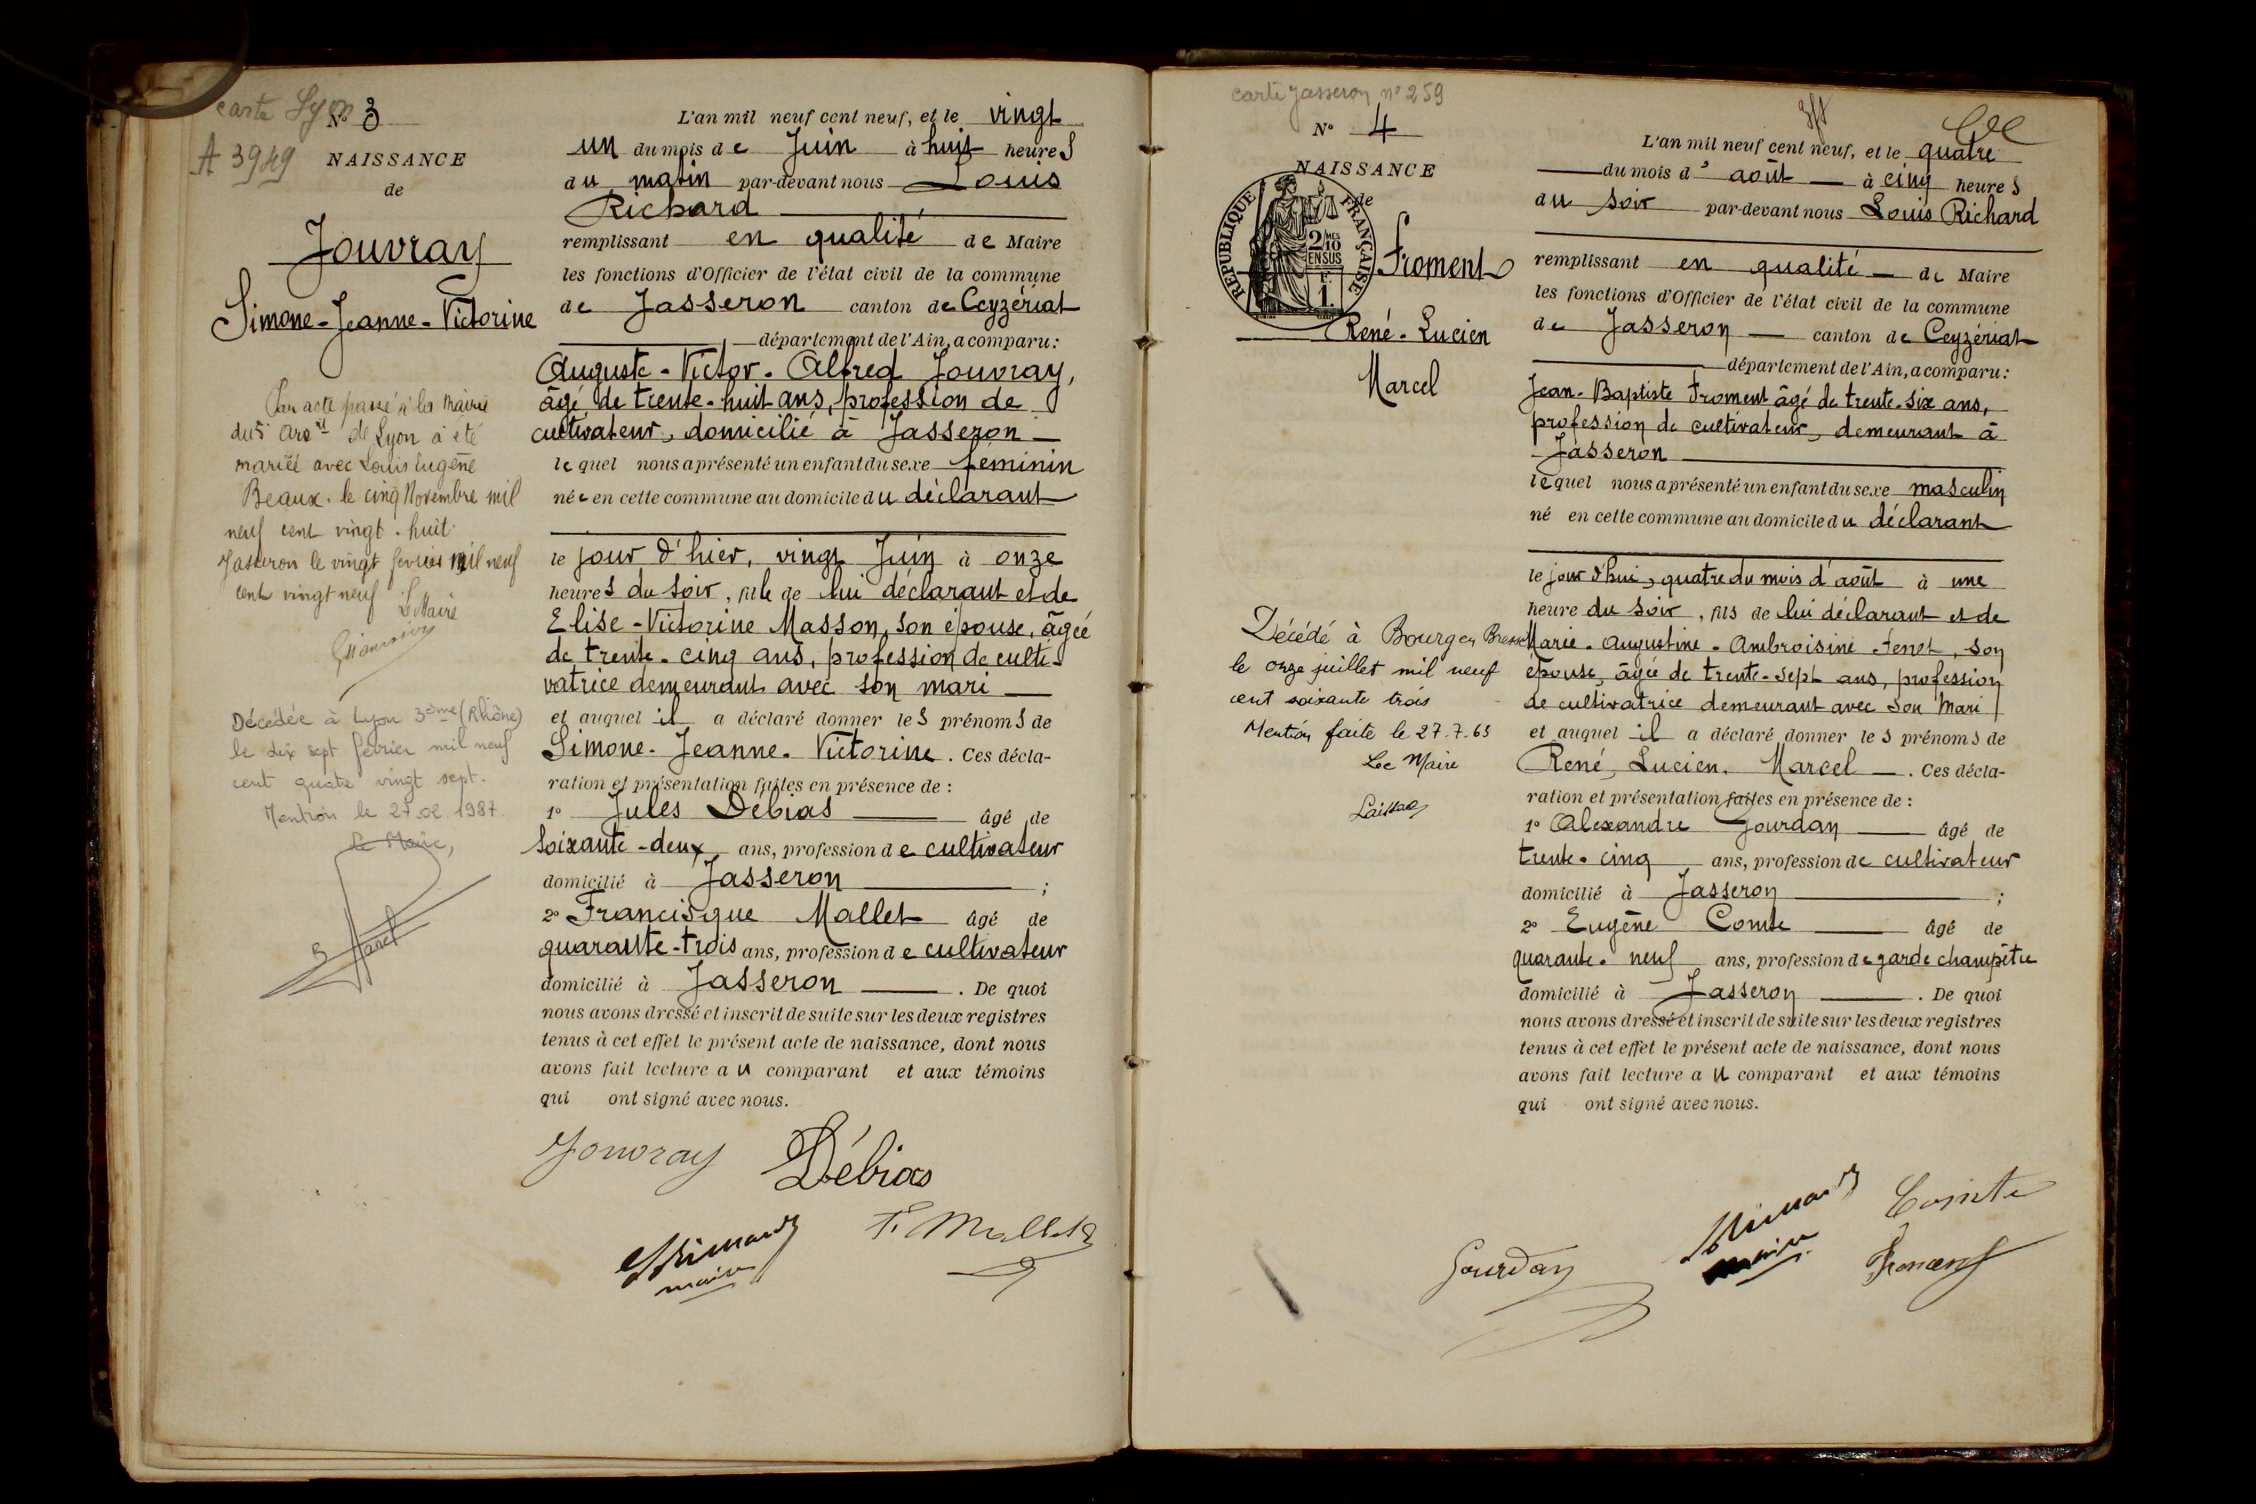 carte Lyon
A 3949
N° 3
NAISSANCE
de
Jouvray
Simone-Jeanne-Victorine
Par acte passé à la Mairie
du 5e Aront de Lyon a été
mariée avec Louis Eugène
Beaux. le cinq Novembre mil
neuf cent vingt. huit.
Jasseron le vingt février mil neuf
cent vingt neuf
Le Maire
Décédée à Lyon 3ème (Rhône)
le dix sept février mil neuf
cent quatre vingt sept.
Mention le 27.02.1987.
Le Maire,
L'an mil neuf cent neuf, et le vingt
un du mois de Juin à huit heures
du matin par-devant nous Louis
Richard
remplissant en qualité de Maire
les fonctions d'Officier de l'état civil de la commune
de Jasseron canton de Ceyzériat
département de l'Ain, a comparu:
Auguste-Victor-Alfred Jouvray,
âgé de trente-huit ans, profession de
cultivateur, domicilié à Jasseron
lequel nous a présenté un enfant du sexe féminin
née en cette commune au domicile du déclarant
le jour d'hier, vingt Juin à onze
heures du soir, fille de lui déclarant et de
Elise-Victorine Masson, son épouse, âgée
de trente-cinq ans, profession de culti-
vatrice demeurant avec son mari
et auquel il a déclaré donner les prénoms de
Simone-Jeanne-Victorine. Ces décla-
ration et présentation faites en présence de :
1° Jules Débias âgé de
soixante-deux ans, profession de cultivateur
domicilié à Jasseron ;
2° Francisque Mallet âgé de
quarante-trois ans, profession de cultivateur
domicilié à Jasseron . De quoi
nous avons dressé et inscrit de suite sur les deux registres
tenus à cet effet le présent acte de naissance, dont nous
avons fait lecture au comparant et aux témoins
qui ont signé avec nous.
Jouvray Débias
F. Mallet
maire
carte Jasseron n° 259
N° 4
NAISSANCE
de
RÉPUBLIQUE FRANÇAISE
2 MES
10
EN SUS
F.
1.
Froment
René-Lucien
Marcel
Décédé à Bourg en Bresse
le onze juillet mil neuf
cent soixante trois
Mention faite le 27.7.63
Le Maire
L'an mil neuf cent neuf, et le quatre
du mois d'août à cinq heures
du soir par-devant nous Louis Richard
remplissant en qualité de Maire
les fonctions d'Officier de l'état civil de la commune
de Jasseron canton de Ceyzériat
département de l'Ain, a comparu:
Jean-Baptiste Froment âgé de trente-six ans,
profession de cultivateur, demeurant à
Jasseron
lequel nous a présenté un enfant du sexe masculin
né en cette commune au domicile du déclarant
le jour d'hui, quatre du mois d'août à une
heure du soir, fils de lui déclarant et de
Marie-Augustine-Ambroisine son
épouse, âgée de trente-sept ans, profession
de cultivatrice demeurant avec son Mari
et auquel il a déclaré donner les prénoms de
René, Lucien, Marcel . Ces décla-
ration et présentation faites en présence de :
1° Alexandre Gourdan âgé de
trente-cinq ans, profession de cultivateur
domicilié à Jasseron ;
2° Eugène Comte âgé de
quarante-neuf ans, profession de garde champêtre
domicilié à Jasseron . De quoi
nous avons dressé et inscrit de suite sur les deux registres
tenus à cet effet le présent acte de naissance, dont nous
avons fait lecture au comparant et aux témoins
qui ont signé avec nous.
Comte
maire
Gourdan
Froment